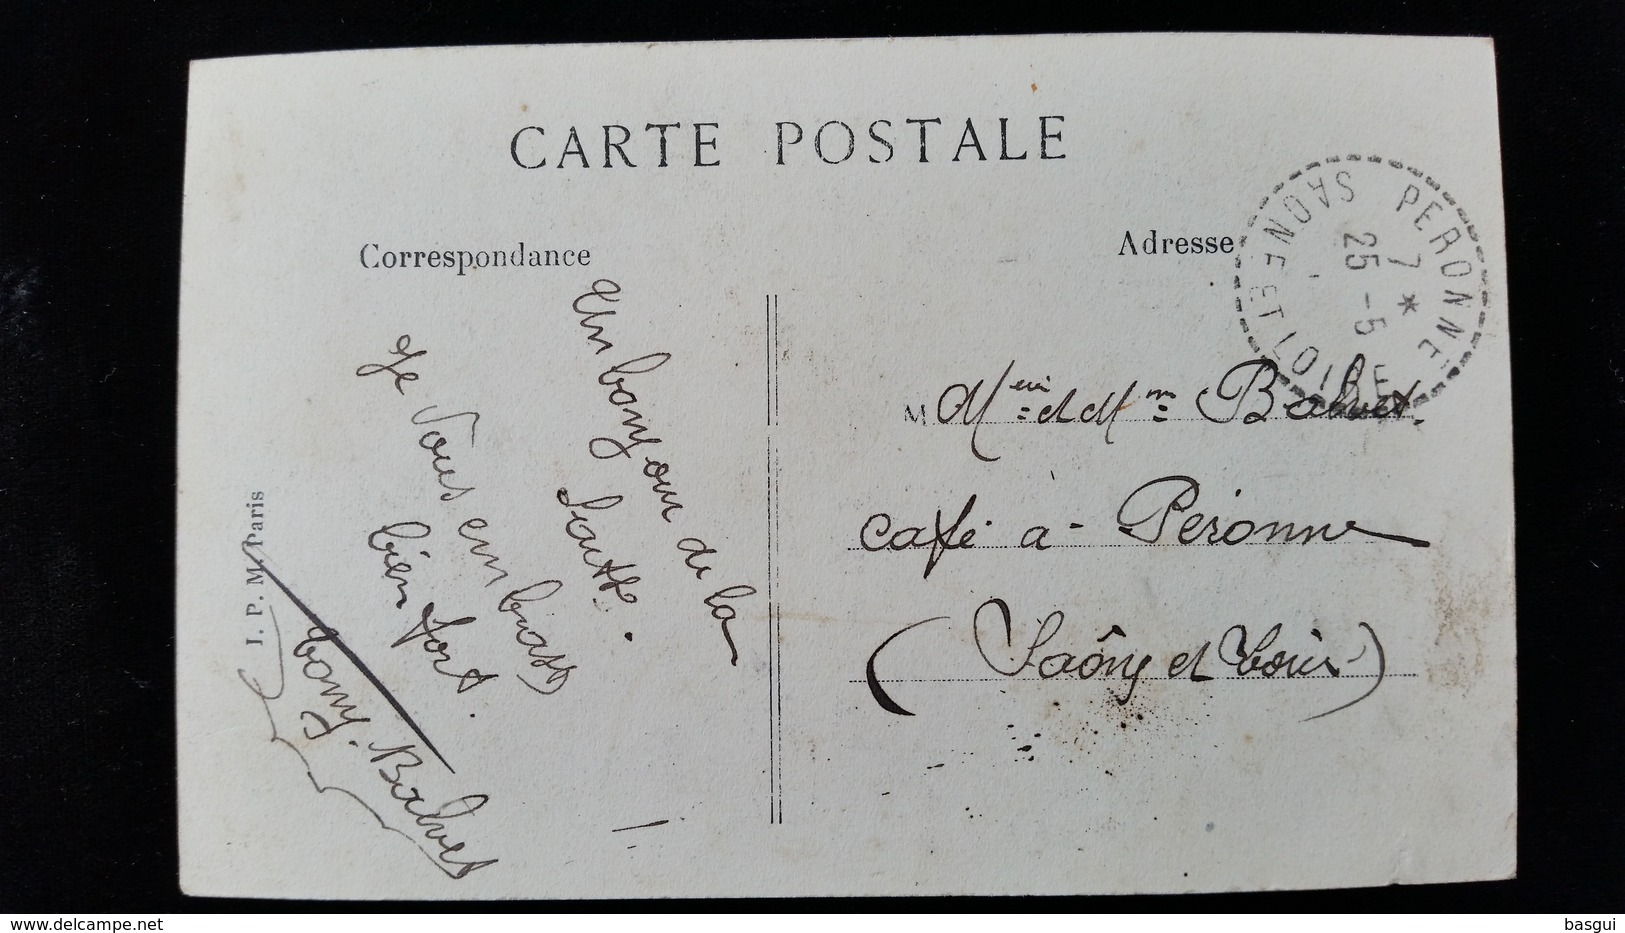 CARTE POSTALE
Correspondance
Adresse
Un bonjour de la
Je vous embrasse
bien fort.
Tony Balvet
J. P. M. Paris
M
et Mme Balvet
café à Péronne
(Saône et Loire)
PERONNE
7 *
25 -5
SAONE ET LOIRE
basgui